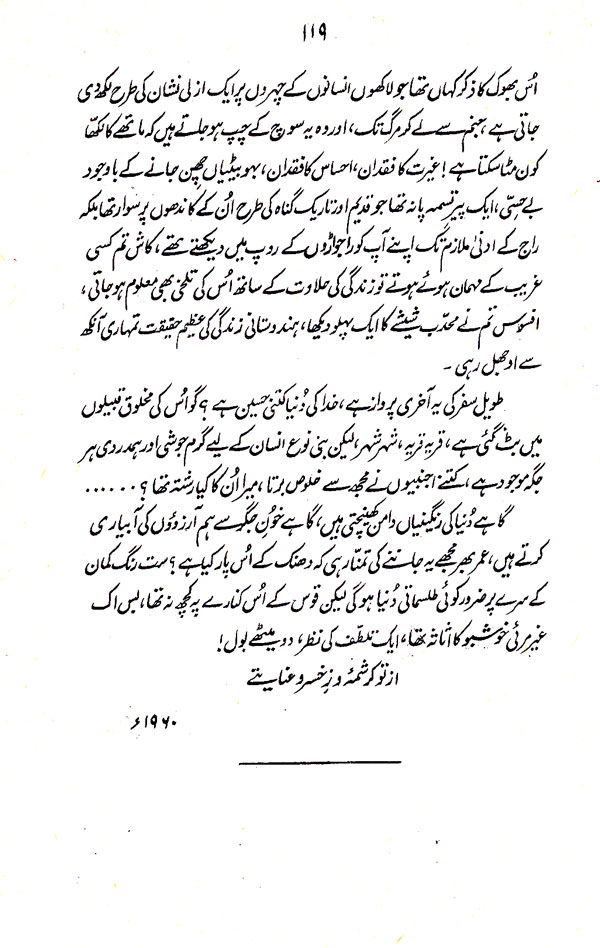 ۱۱۹
اُس بھوک کا ذکر کہاں تھا جو لاکھوں انسانوں کے چہروں پر ایک ازلی نشان کی طرح لکھ دی
جاتی ہے، جنم سے لے کر مرگ تک، اور وہ یہ سوچ کے چپ ہو جاتے ہیں کہ ماتھے کا لکھا
کون مٹا سکتا ہے! غیرت کا فقدان، احساس کا فقدان، بہو بیٹیاں چھن جانے کے باوجود
بے حسّی، ایک پیر تسمہ پا نہ تھا جو قدیم اور تاریک گناہ کی طرح اُن کے کاندھوں پر سوار تھا بلکہ
راج کے ادنیٰ ملازم تک اپنے آپ کو راجواڑوں کے روپ میں دیکھتے تھے، کاش تم کسی
غریب کے مہمان ہوئے ہوتے تو زندگی کی حلاوت کے ساتھ اُس کی تلخی بھی معلوم ہو جاتی،
افسوس تم نے محدّب شیشے کا ایک پہلو دیکھا، ہندوستانی زندگی کی عظیم حقیقت تمہاری آنکھ
سے اوجھل رہی ۔
طویل سفر کی یہ آخری پرواز ہے، خدا کی دُنیا کتنی حسین ہے؟ گو اُس کی مخلوق قبیلوں
میں بٹ گئی ہے، قریہ قریہ، شہر شہر، لیکن بنی نوع انسان کے لیے گرم جوشی اور ہمدردی ہر
جگہ موجود ہے، کتنے اجنبیوں نے مجھ سے خلوص برتا، میرا اُن کا کیا رشتہ تھا؟ ......
گاہے دُنیا کی رنگینیاں دامن کھینچتی ہیں، گاہے خونِ جگر سے ہم آرزوؤں کی آبیاری
کرتے ہیں، عمر بھر مجھے یہ جاننے کی تمنّا رہی کہ دھنک کے اُس پار کیا ہے؟ ست رنگ کمان
کے سرے پر ضرور کوئی طلسماتی دُنیا ہوگی لیکن قوس کے اُس کنارے پہ کچھ نہ تھا، بس اک
غیر مرئی خوشبو کا اثاثہ تھا، ایک تلطّف کی نظر، دو میٹھے بول!
از تو کرشمۂ و زِ خسرو عنایتے
۱۹۶۰ء